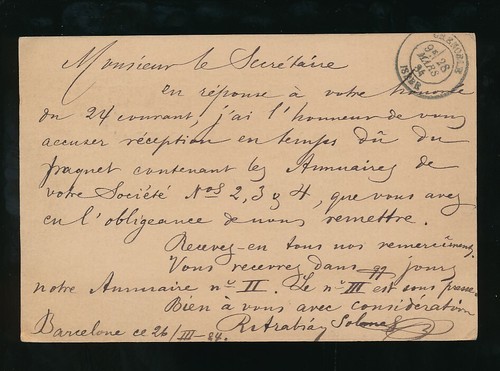 GRENOBLE
9E 28
MARS
84
ISÈRE
Monsieur le Secrétaire
En réponse à votre honorée
du 24 courant, j'ai l'honneur de vous
accuser réception en temps dû du
paquet contenant les Annuaires de
votre Société Nos 2, 3 y 4, que vous avez
eu l'obligeance de nous remettre.
Recevez-en tous nos remerciments.
Vous recevrez dans qq jours
notre Annuaire nº II. Le nº III est sous presse.
Bien à vous avec considération
Barcelone ce 26/III-84. R. Arabia y Solanas